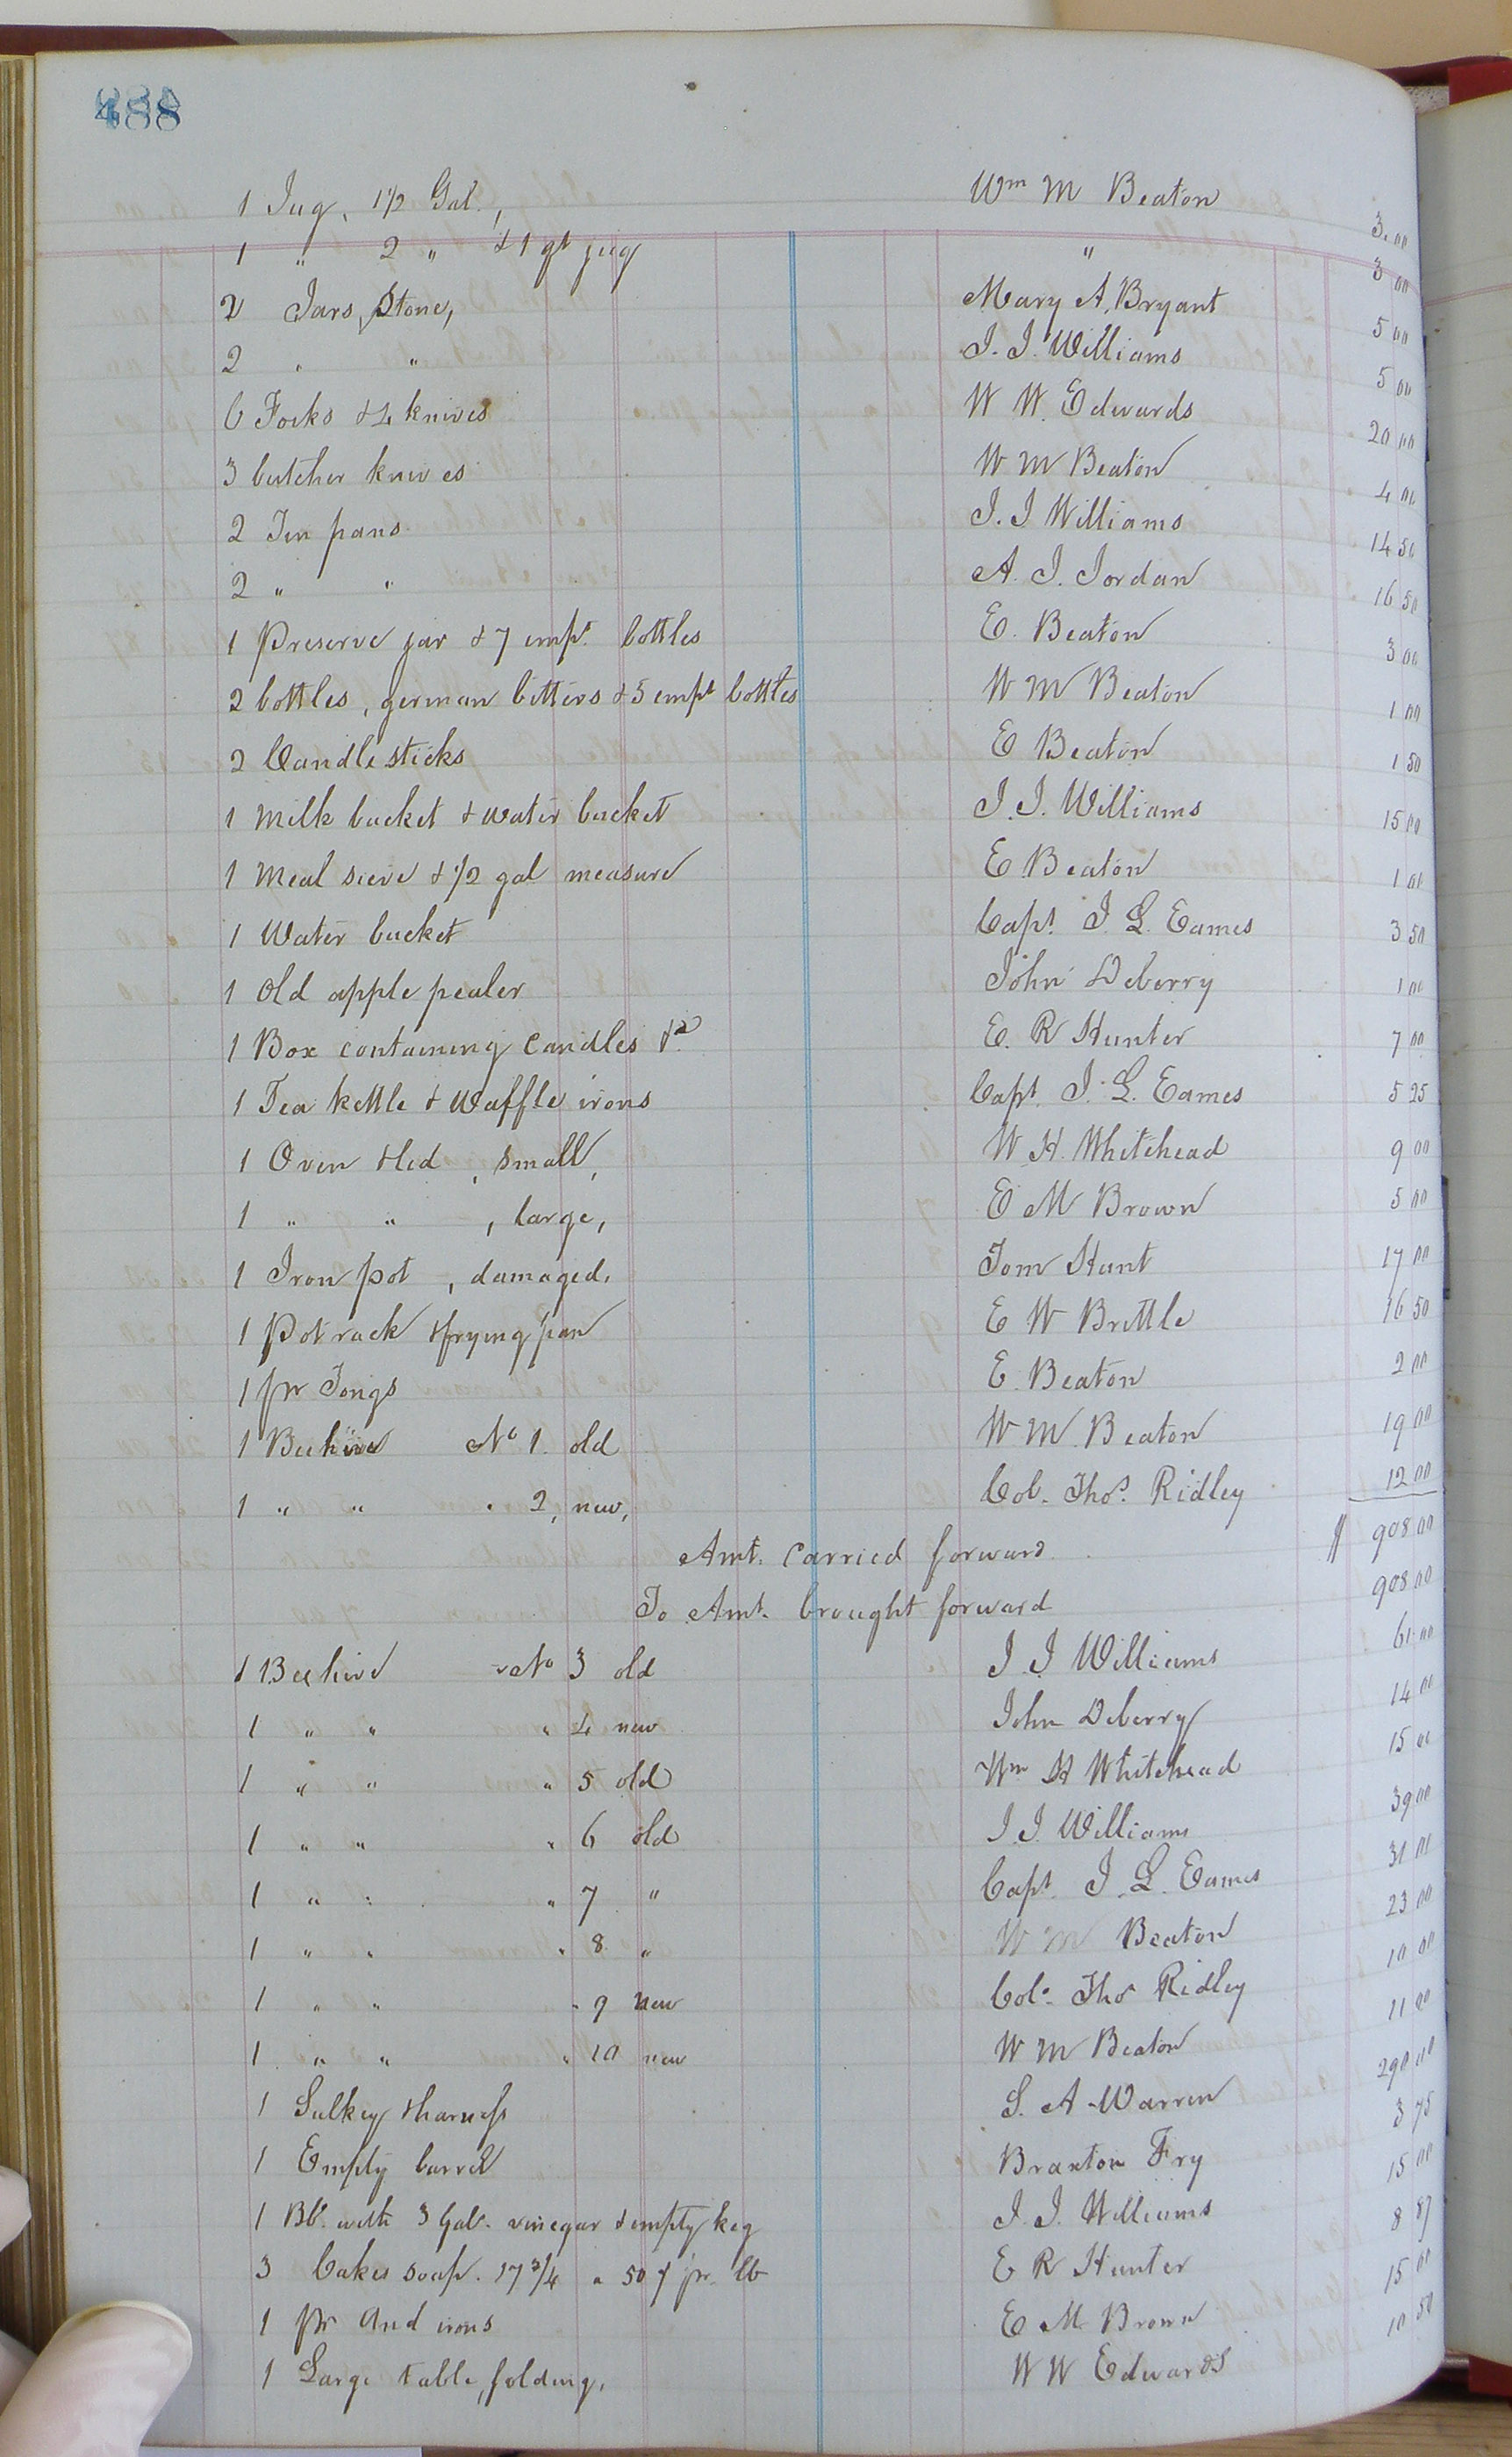 488
1 Jug, 1 1/2 Gal., Wm M Beaton 3.00
1 " 2 " & 1 qt jug " 3 00
2 Jars, Stone, Mary A. Bryant 5 00
2 " " J. J. Williams 5 00
6 Forks & 4 knives W W. Edwards 20 00
3 butcher knives W M Beaton 4 00
2 Tin pans J. J Williams 14 50
2 " " A. J. Jordan 16 50
1 Preserve jar & 7 empt. bottles E. Beaton 3 00
2 bottles, german bitters & 5 empt bottles W M Beaton 1 00
2 Candle sticks E Beaton 1 50
1 Milk bucket & water bucket J. J. Williams 15 00
1 Meal sieve & 1/2 gal measure E. Beaton 1 00
1 Water bucket Capt. J. L. Eames 3 50
1 Old apple pealer John Deberry 1 00
1 Box containing candles &c. E. R Hunter 7 00
1 Tea kettle & Waffle irons Capt. J. L. Eames 5 25
1 Oven & lid, small, W. H. Whitehead 9 00
1 " " , large, E M Brown 5 00
1 Iron pot, damaged. Tom Hunt 17 00
1 Pot rack & frying pan E W Brittle 16 50
1 pr Tongs E. Beaton 2 00
1 Beehive No 1. old W M. Beaton 19 00
1 " " " 2, new, Col. Thos. Ridley 12 00
Amt. carried forward $ 908 00
To Amt. brought forward 908 00
1 Beehive No 3 old J. J Williams 61 00
1 " " " 4 new John Deberry 14 00
1 " " " 5 old Wm H Whitehead 15 00
1 " " " 6 old J. J. Williams 39 00
1 " " " 7 " Capt. J. L. Eames 31 00
1 " " " 8 " W M Beaton 23 00
1 " " " 9 new Col. Thos Ridley 10 00
1 " " " 10 new W M Beaton 11 00
1 Sulkey & harness S. A. Warren 290 00
1 Empty barrel Braxton Fry 3 75
1 Bb. with 3 Gal. vinegar & empty keg J. J. Williams 15 00
3 Cakes soap. 17 3/4 a 50 ¢ pr lb E R Hunter 8 87
1 pr And irons E M. Brown 15 00
1 Large table, folding, W W Edwards 10 50